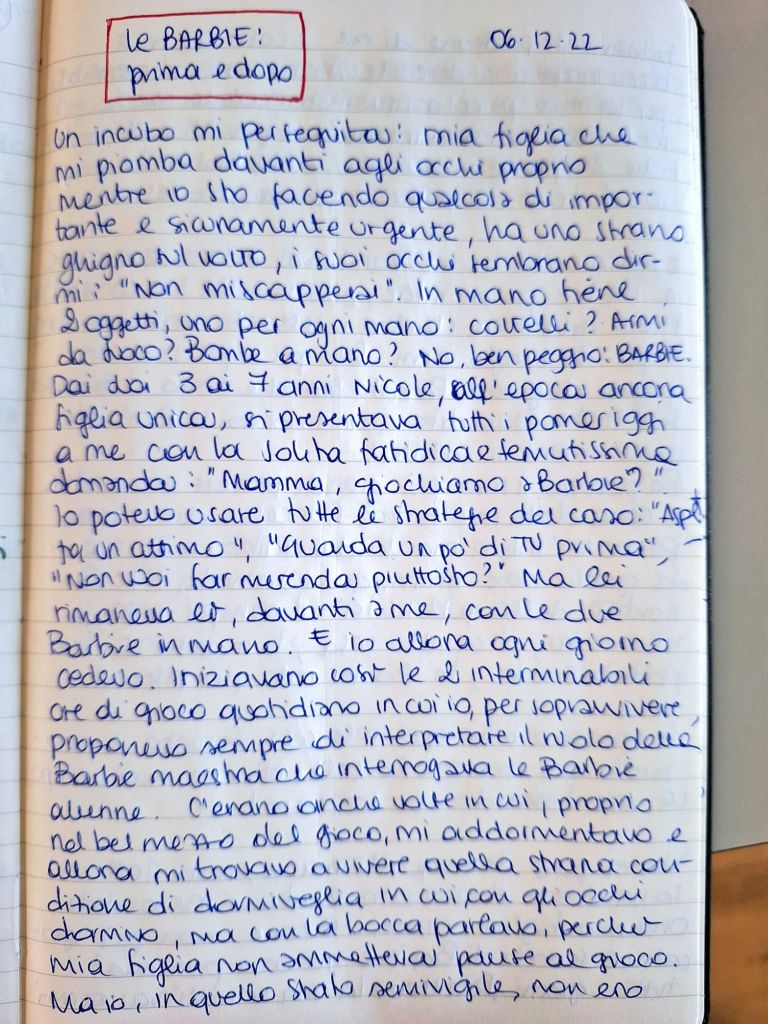 le BARBIE:
prima e dopo
06.12.22
Un incubo mi perseguita: mia figlia che
mi piomba davanti agli occhi proprio
mentre io sto facendo qualcosa di impor-
tante e sicuramente urgente, ha uno strano
ghigno sul volto, i suoi occhi sembrano dir-
mi: "Non mi scapperai". In mano tiene
2 oggetti, uno per ogni mano: coltelli? Armi
da fuoco? Bombe a mano? No, ben peggio: BARBIE.
Dai suoi 3 ai 7 anni Nicole, all'epoca ancora
figlia unica, si presentava tutti i pomeriggi
a me con la solita fatidica e temutissima
domanda: "Mamma, giochiamo a Barbie?".
Io potevo usare tutte le strategie del caso: "Aspet-
ta un attimo", "Guarda un po' di TV prima",
"Non vuoi far merenda piuttosto?" Ma lei
rimaneva lì, davanti a me, con le due
Barbie in mano. E io allora ogni giorno
cedevo. Iniziavano così le 2 interminabili
ore di gioco quotidiano in cui io, per sopravvivere,
proponevo sempre di interpretare il ruolo della
Barbie maestra che interrogava le Barbie
alunne. C'erano anche volte in cui, proprio
nel bel mezzo del gioco, mi addormentavo e
allora mi trovavo a vivere quella strana con-
dizione di dormiveglia in cui con gli occhi
dormivo, ma con la bocca parlavo, perché
mia figlia non ammetteva pause al gioco.
Ma io, in quello stato semivigile, non ero